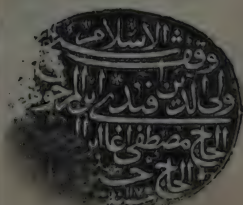 وقف شيخ الاسلام
ولى الدين افندى ابن المرحوم
الحاج مصطفى اغا ابن
الحاج